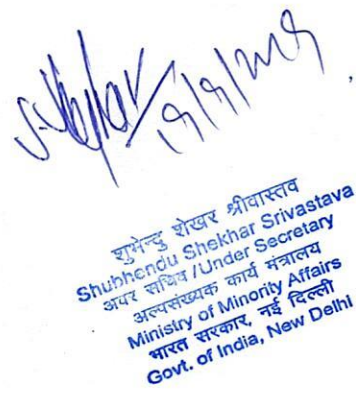 शुभेन्दु शेखर श्रीवास्तव
Shubhendu Shekhar Srivastava
अपर सचिव /Under Secretary
अल्पसंख्यक कार्य मंत्रालय
Ministry of Minority Affairs
भारत सरकार, नई दिल्ली
Govt. of India, New Delhi